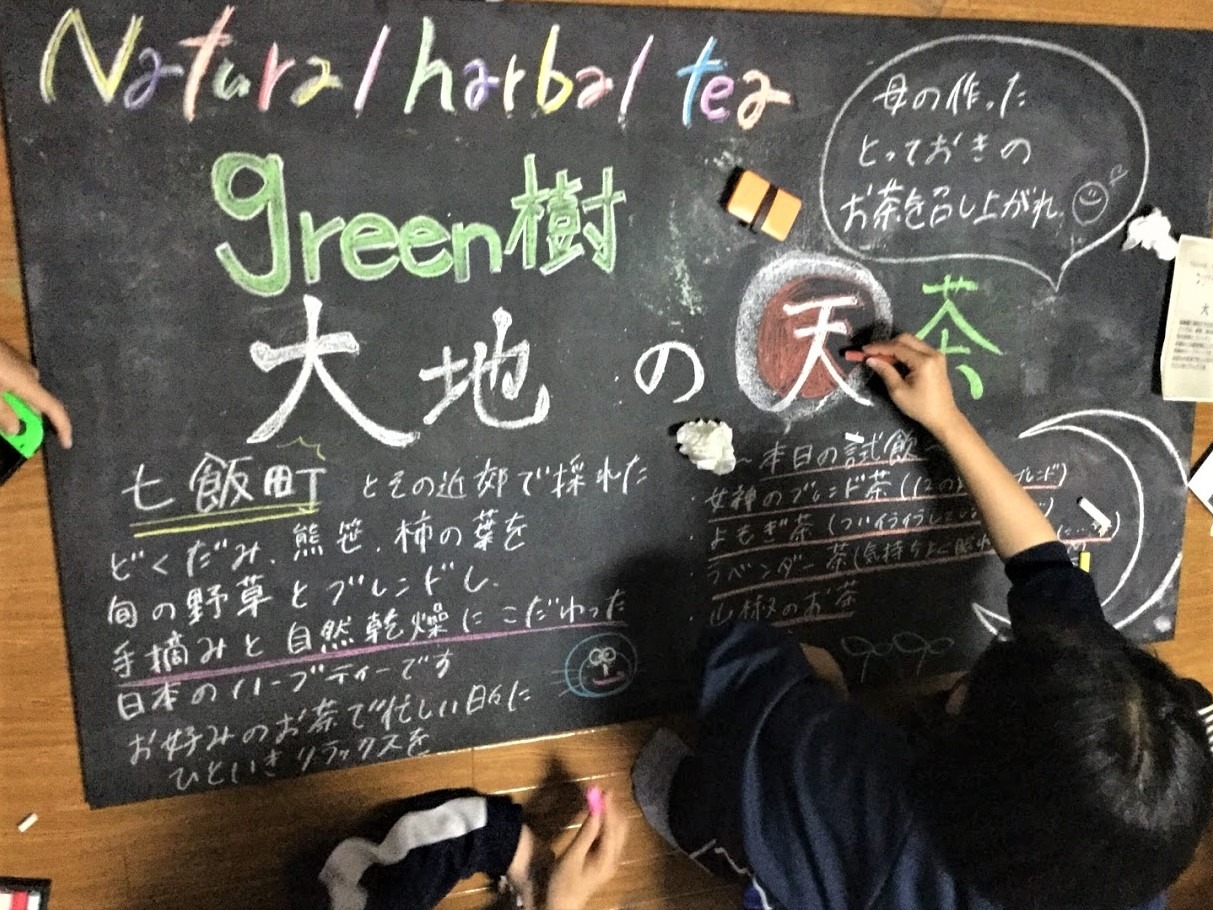 Natural harbal tea
母の作った
とっておきの
お茶を召し上がれ
green樹
大地の天茶
七飯町とその近郊で採れた
どくだみ、熊笹、柿の葉を
旬の野草とブレンドし、
手摘みと自然乾燥にこだわった
日本のハーブティーです
お好みのお茶で忙しい日々に
ひといきリラックスを
~本日の試飲~
・女神のブレンド茶(12の ブレンド)
・よもぎ茶(ついイライラし
・ラベンダー茶(気持ちよく眠
・山椒のお茶